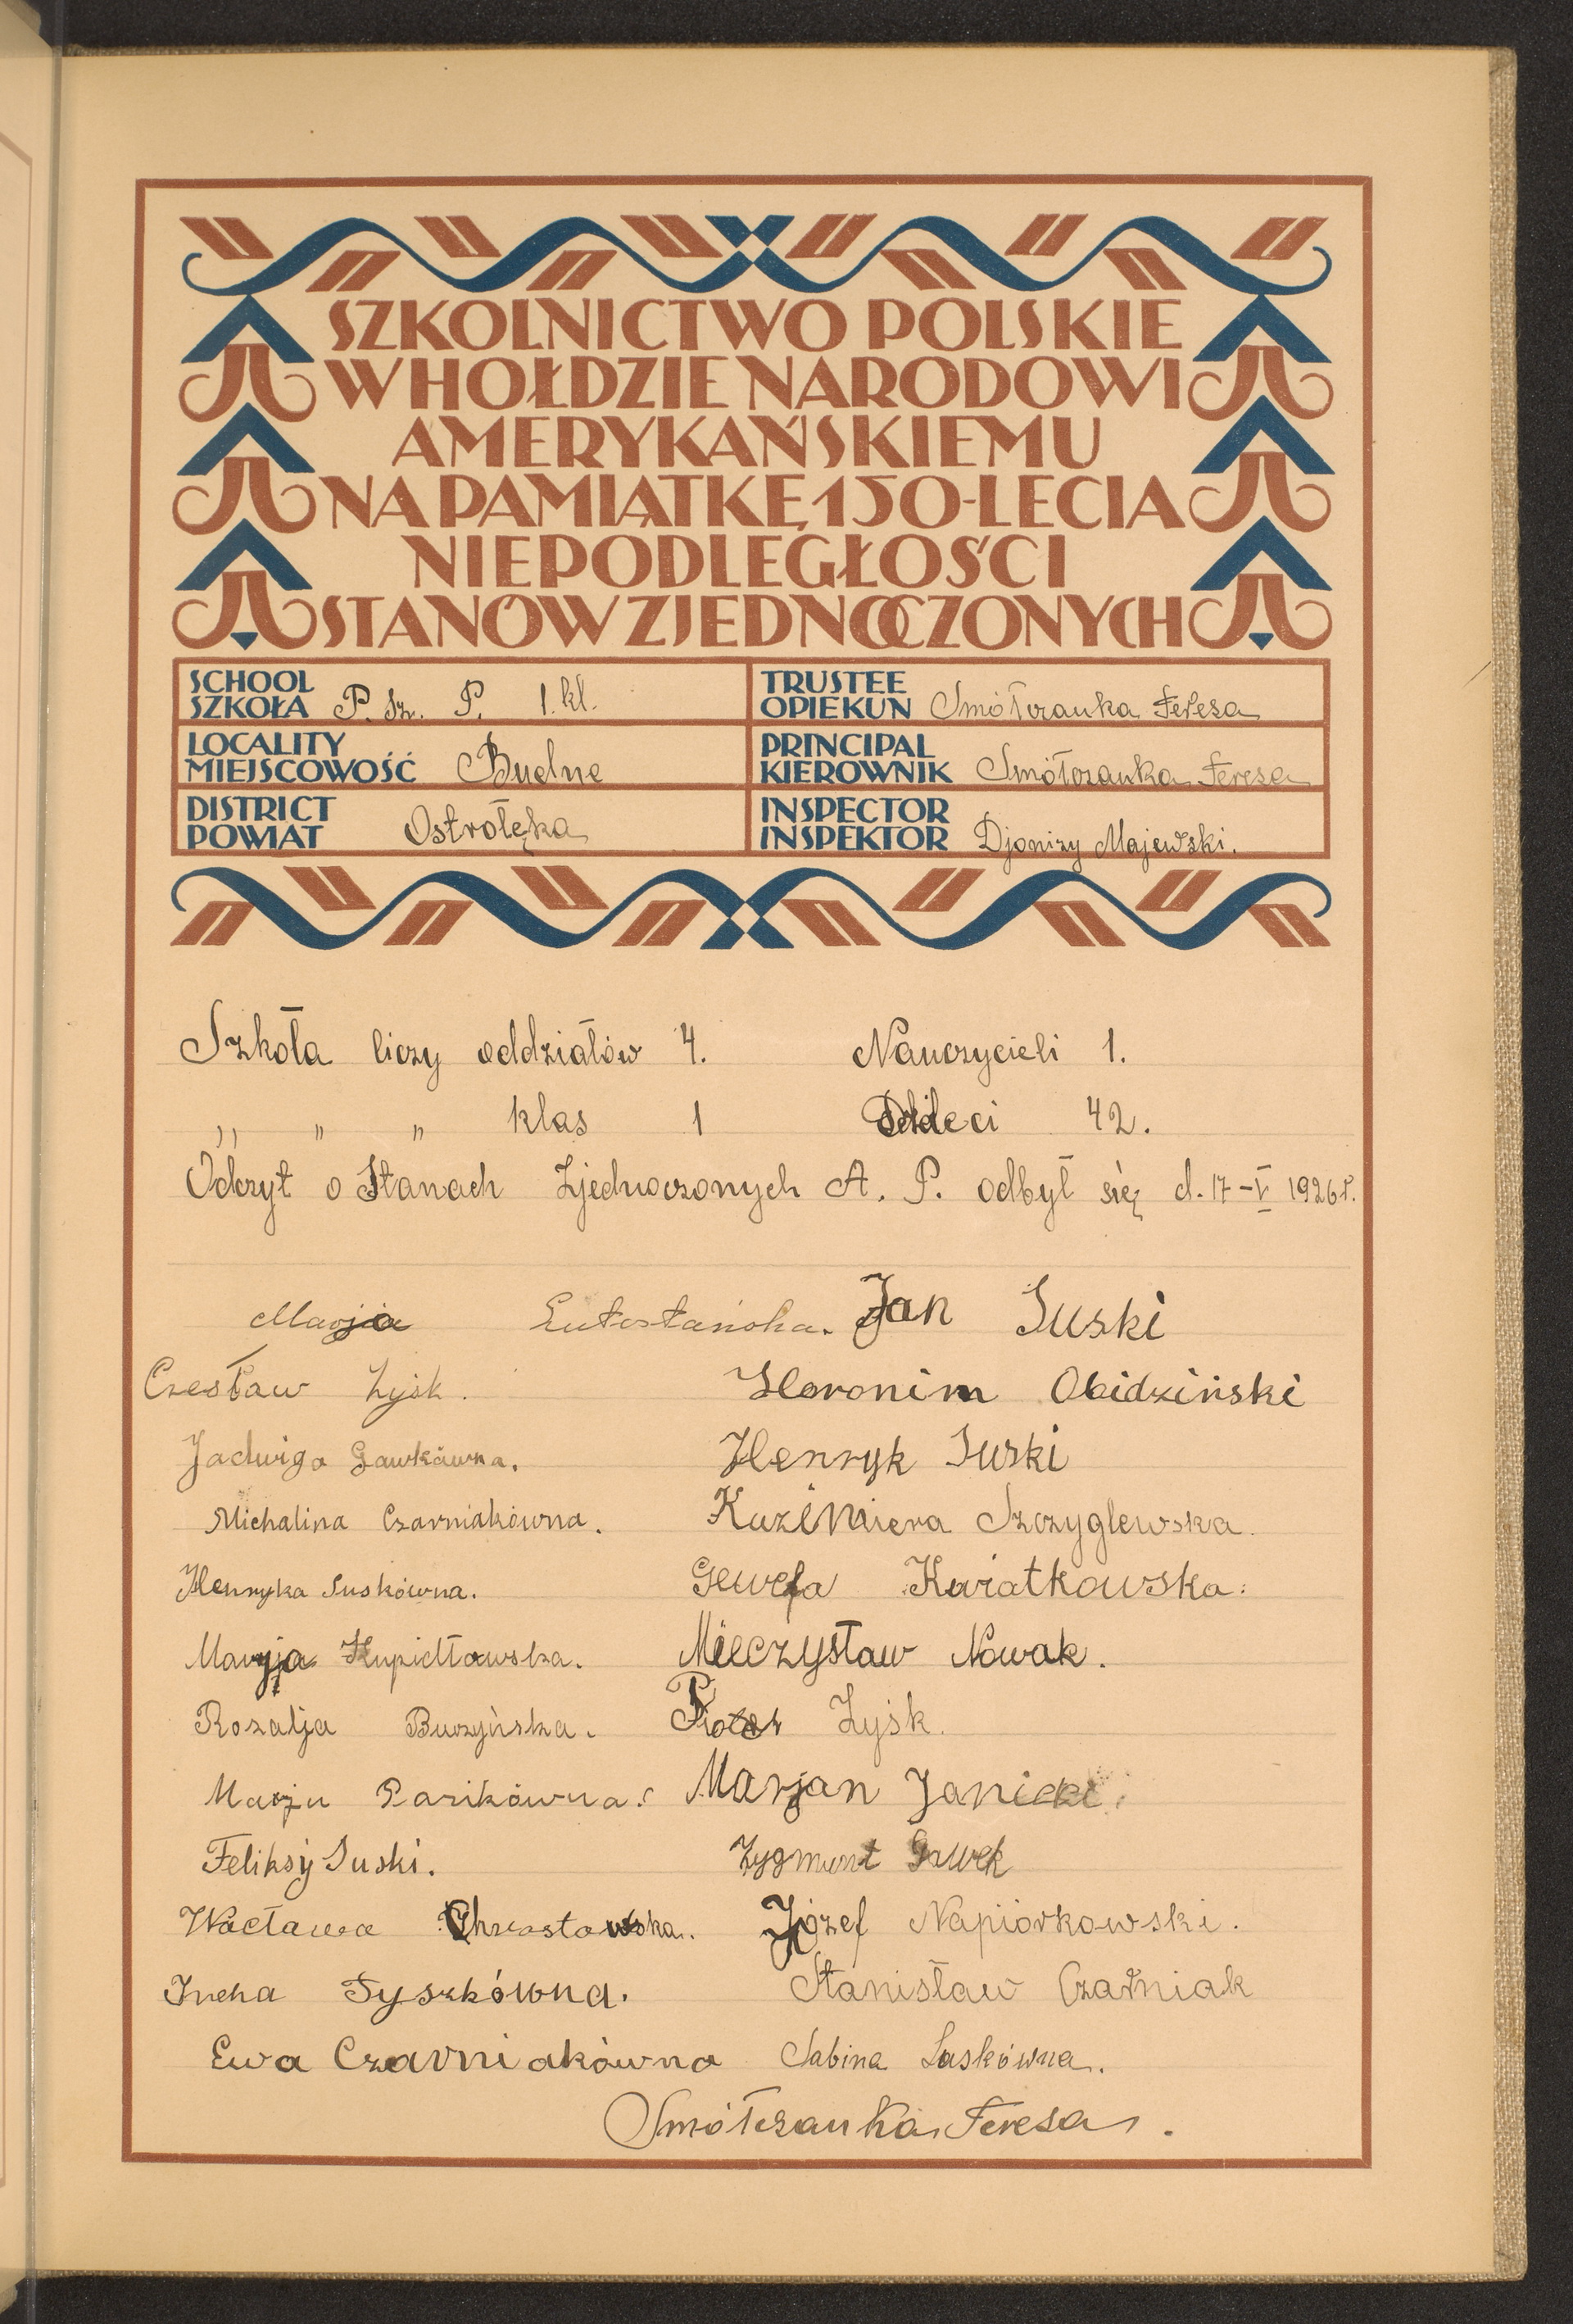 SZKOLNICTWO POLSKIE
W HOŁDZIE NARODOWI
AMERYKAŃSKIEMU
NA PAMIĄTKĘ 150-LECIA
NIEPODLEGŁOŚCI
STANÓW ZJEDNOCZONYCH
SCHOOL
SZKOŁA P. Sz. P. 1. kl.
TRUSTEE
OPIEKUN Smółczanka Teresa
LOCALITY
MIEJSCOWOŚĆ Budne
PRINCIPAL
KIEROWNIK Smółczanka Teresa
DISTRICT
POWIAT Ostrołęka
INSPECTOR
INSPEKTOR Djonizy Majewski.
Szkoła liczy oddziałów 4. Nauczycieli 1.
„ „ „ klas 1 Dzieci 42.
Odczyt o Stanach Zjednoczonych A. P. odbył się d. 17-V 1926 r.
Marja Jan Suski
Czesław Zyśk. Heronim Obidziński
Jadwiga Gawkówna. Henryk Suski
Michalina Czarniakówna. Kazimiera Szczyglewska.
Henryka Suskówna. Kwiatkowska.
Maryja Mieczysław Nowak.
Rozalja Buczyńska. Piotr Zyśk.
Parikówna. Marjan Janicki.
Feliksy Suski. Zygmunt Gawek
Wacława Chrostowska. Józef Napiórkowski.
Irena Tyszkówna. Stanisław Czarniak
Ewa Czarniakówna Sabina Laskówna.
Smółczanka Teresa.